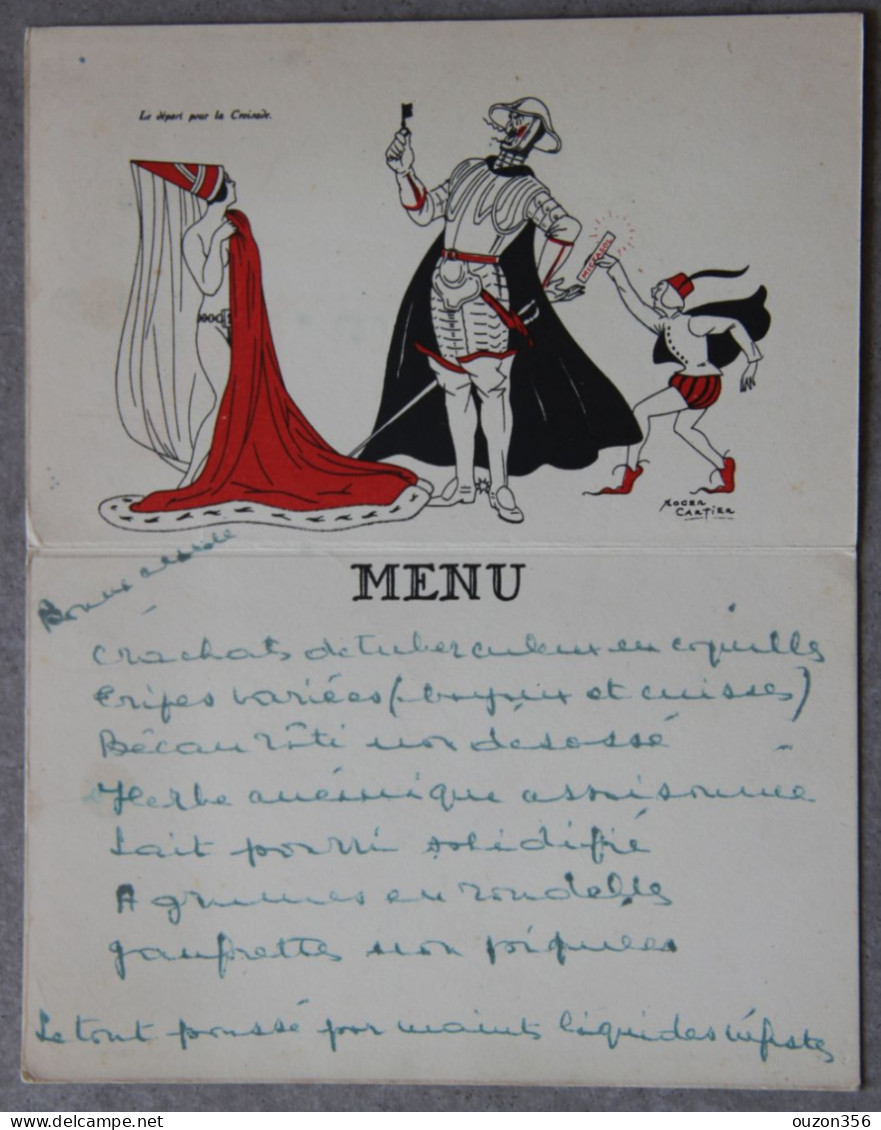 Le départ pour la Croisade.
MICTASOL
ROGER
CARTIER
MENU
Bonne
Crachats de tuberculeux en coquilles
Tripes variées (boyaux et cuisses)
Bécau rôti non désossé
Herbe anémique assaisonnée
Lait pourri solidifié
Agrumes en rondelles
Gaufrettes non piquées
Le tout poussé par maints liquides infects
delcampe.net
ouzon356